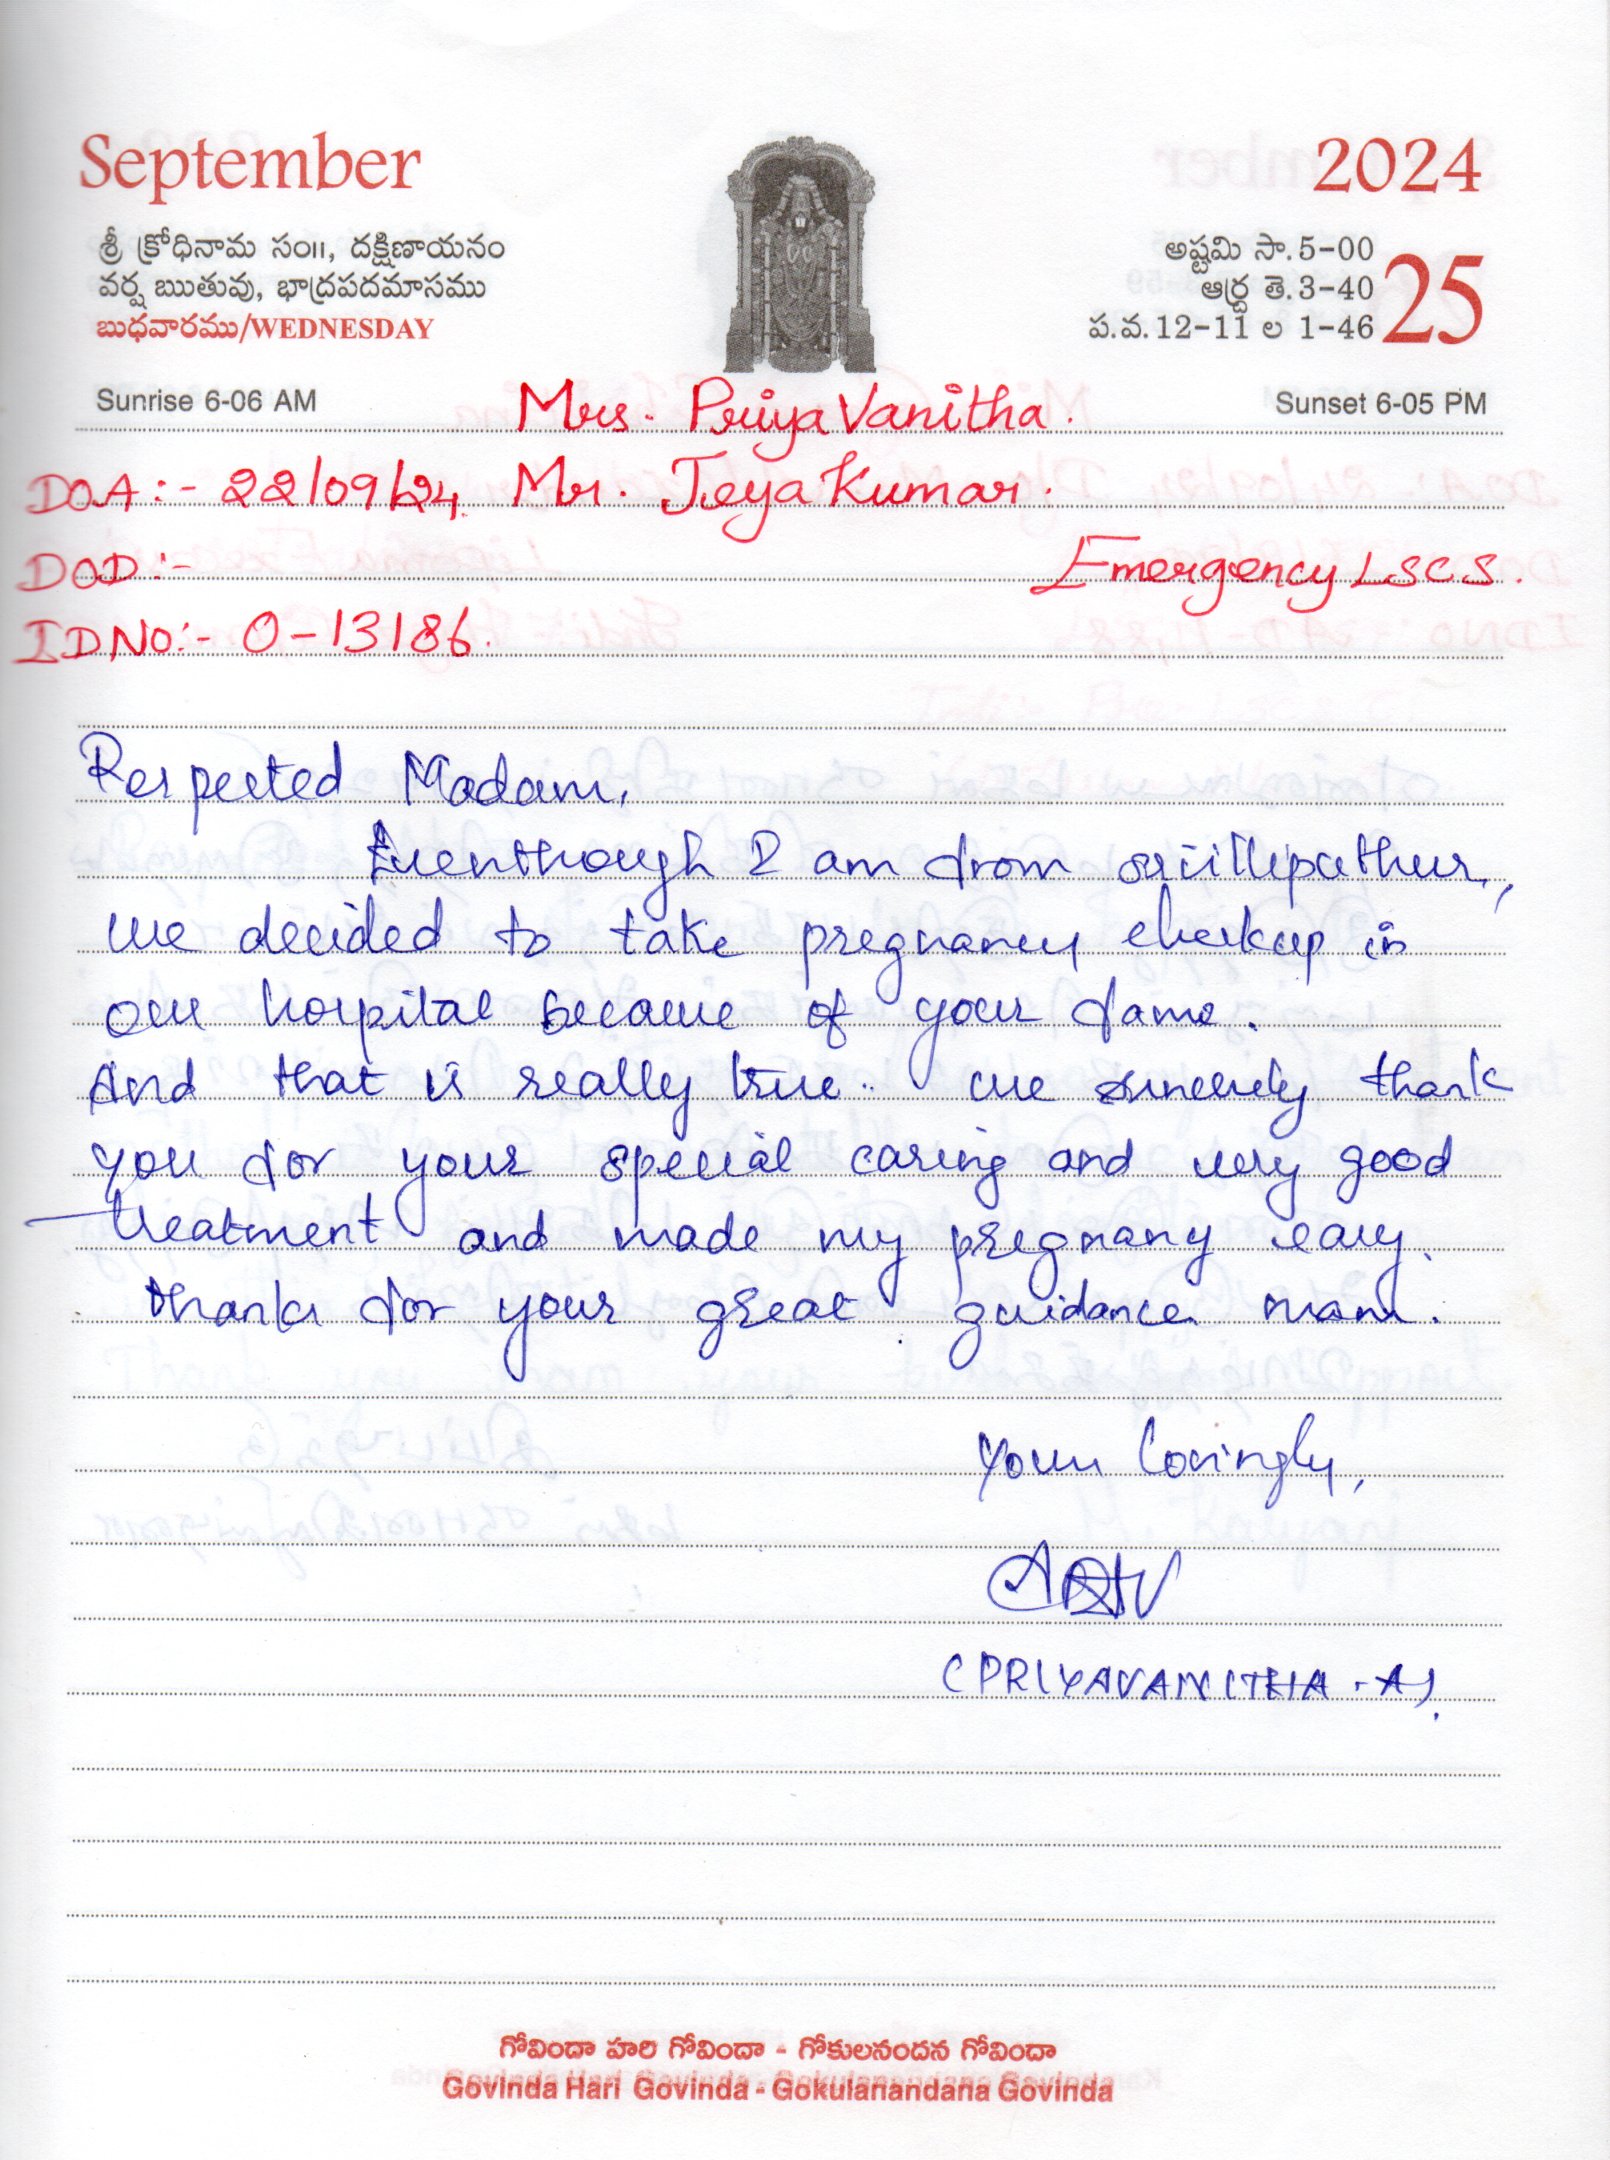 September
2024
శ్రీ క్రోధినామ సం॥, దక్షిణాయనం
వర్ష ఋతువు, భాద్రపదమాసము
బుధవారము/WEDNESDAY
అష్టమి సా.5-00
ఆర్ద్ర తె.3-40
ప.వ.12-11 ల 1-46
25
Sunrise 6-06 AM
Sunset 6-05 PM
Mrs. Priya Vanitha.
DOA:- 22/09/24 Mr. Jeya Kumar.
DOD:- Emergency LSCS.
ID No:- O-13186.
Respected Madam,
Eventhough I am from srivillipputhur,
we decided to take pregnancy checkup in
our hospital because of your fame.
And that is really true.. we sincerely thank
you for your special caring and very good
treatment and made my pregnany easy.
thanks for your great guidance mam.
Yours lovingly,
(PRIYAVANITHA.A).
గోవిందా హరి గోవిందా - గోకులనందన గోవిందా
Govinda Hari Govinda - Gokulanandana Govinda